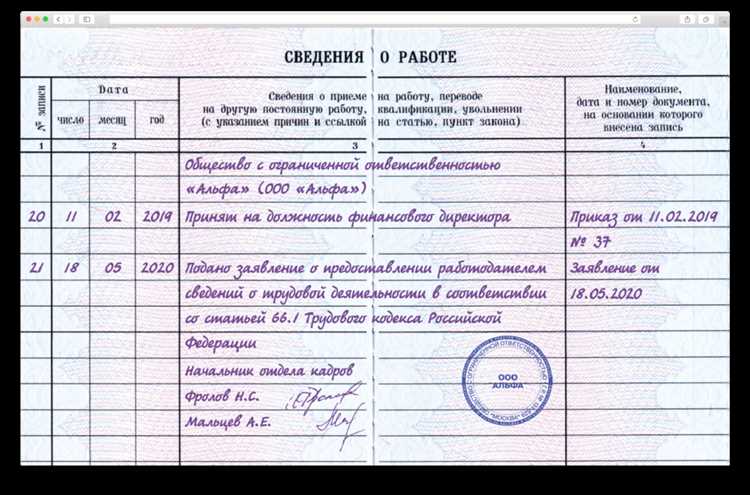 СВЕДЕНИЯ О РАБОТЕ
№ записи
Дата
Сведения о приеме на работу, переводе
на другую постоянную работу, квалификации, увольнении
(с указанием причин и ссылкой на статью, пункт закона)
Наименование,
дата и номер документа,
на основании которого
внесена запись
число месяц год
1 2 3 4
Общество с ограниченной ответственностью
«Альфа» (ООО «Альфа»)
20 11 02 2019 Принят на должность финансового директора Приказ от 11.02.2019
№ 37
21 18 05 2020 Подано заявление о предоставлении работодателем Заявление от
сведений о трудовой деятельности в соответствии 18.05.2020
со статьей 66.1 Трудового кодекса Российской
Федерации
Начальник отдела кадров
Фролов Н.С.
Мальцев А.Е.
ООО
АЛЬФА